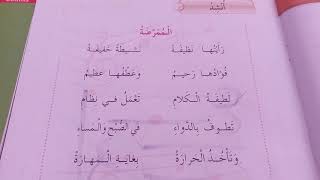 أُنْشِدُ
الْمُمَرِّضَةُ
رَأَيْتُهَا نَظِيفَة نَشِيطَةً خَفِيفَة
فُؤَادُهَا رَحِيم وَعَطْفُهَا عَظِيم
لَطِيفَةُ الْكَلَام تَعْمَلُ فِي نِظَام
تَطُوفُ بِالدَّوَاء فِي الصُّبْحِ وَالْمَسَاء
وَتَأْخُذُ الْحَرَارَة بِغَايَةِ الْمَهَارَة